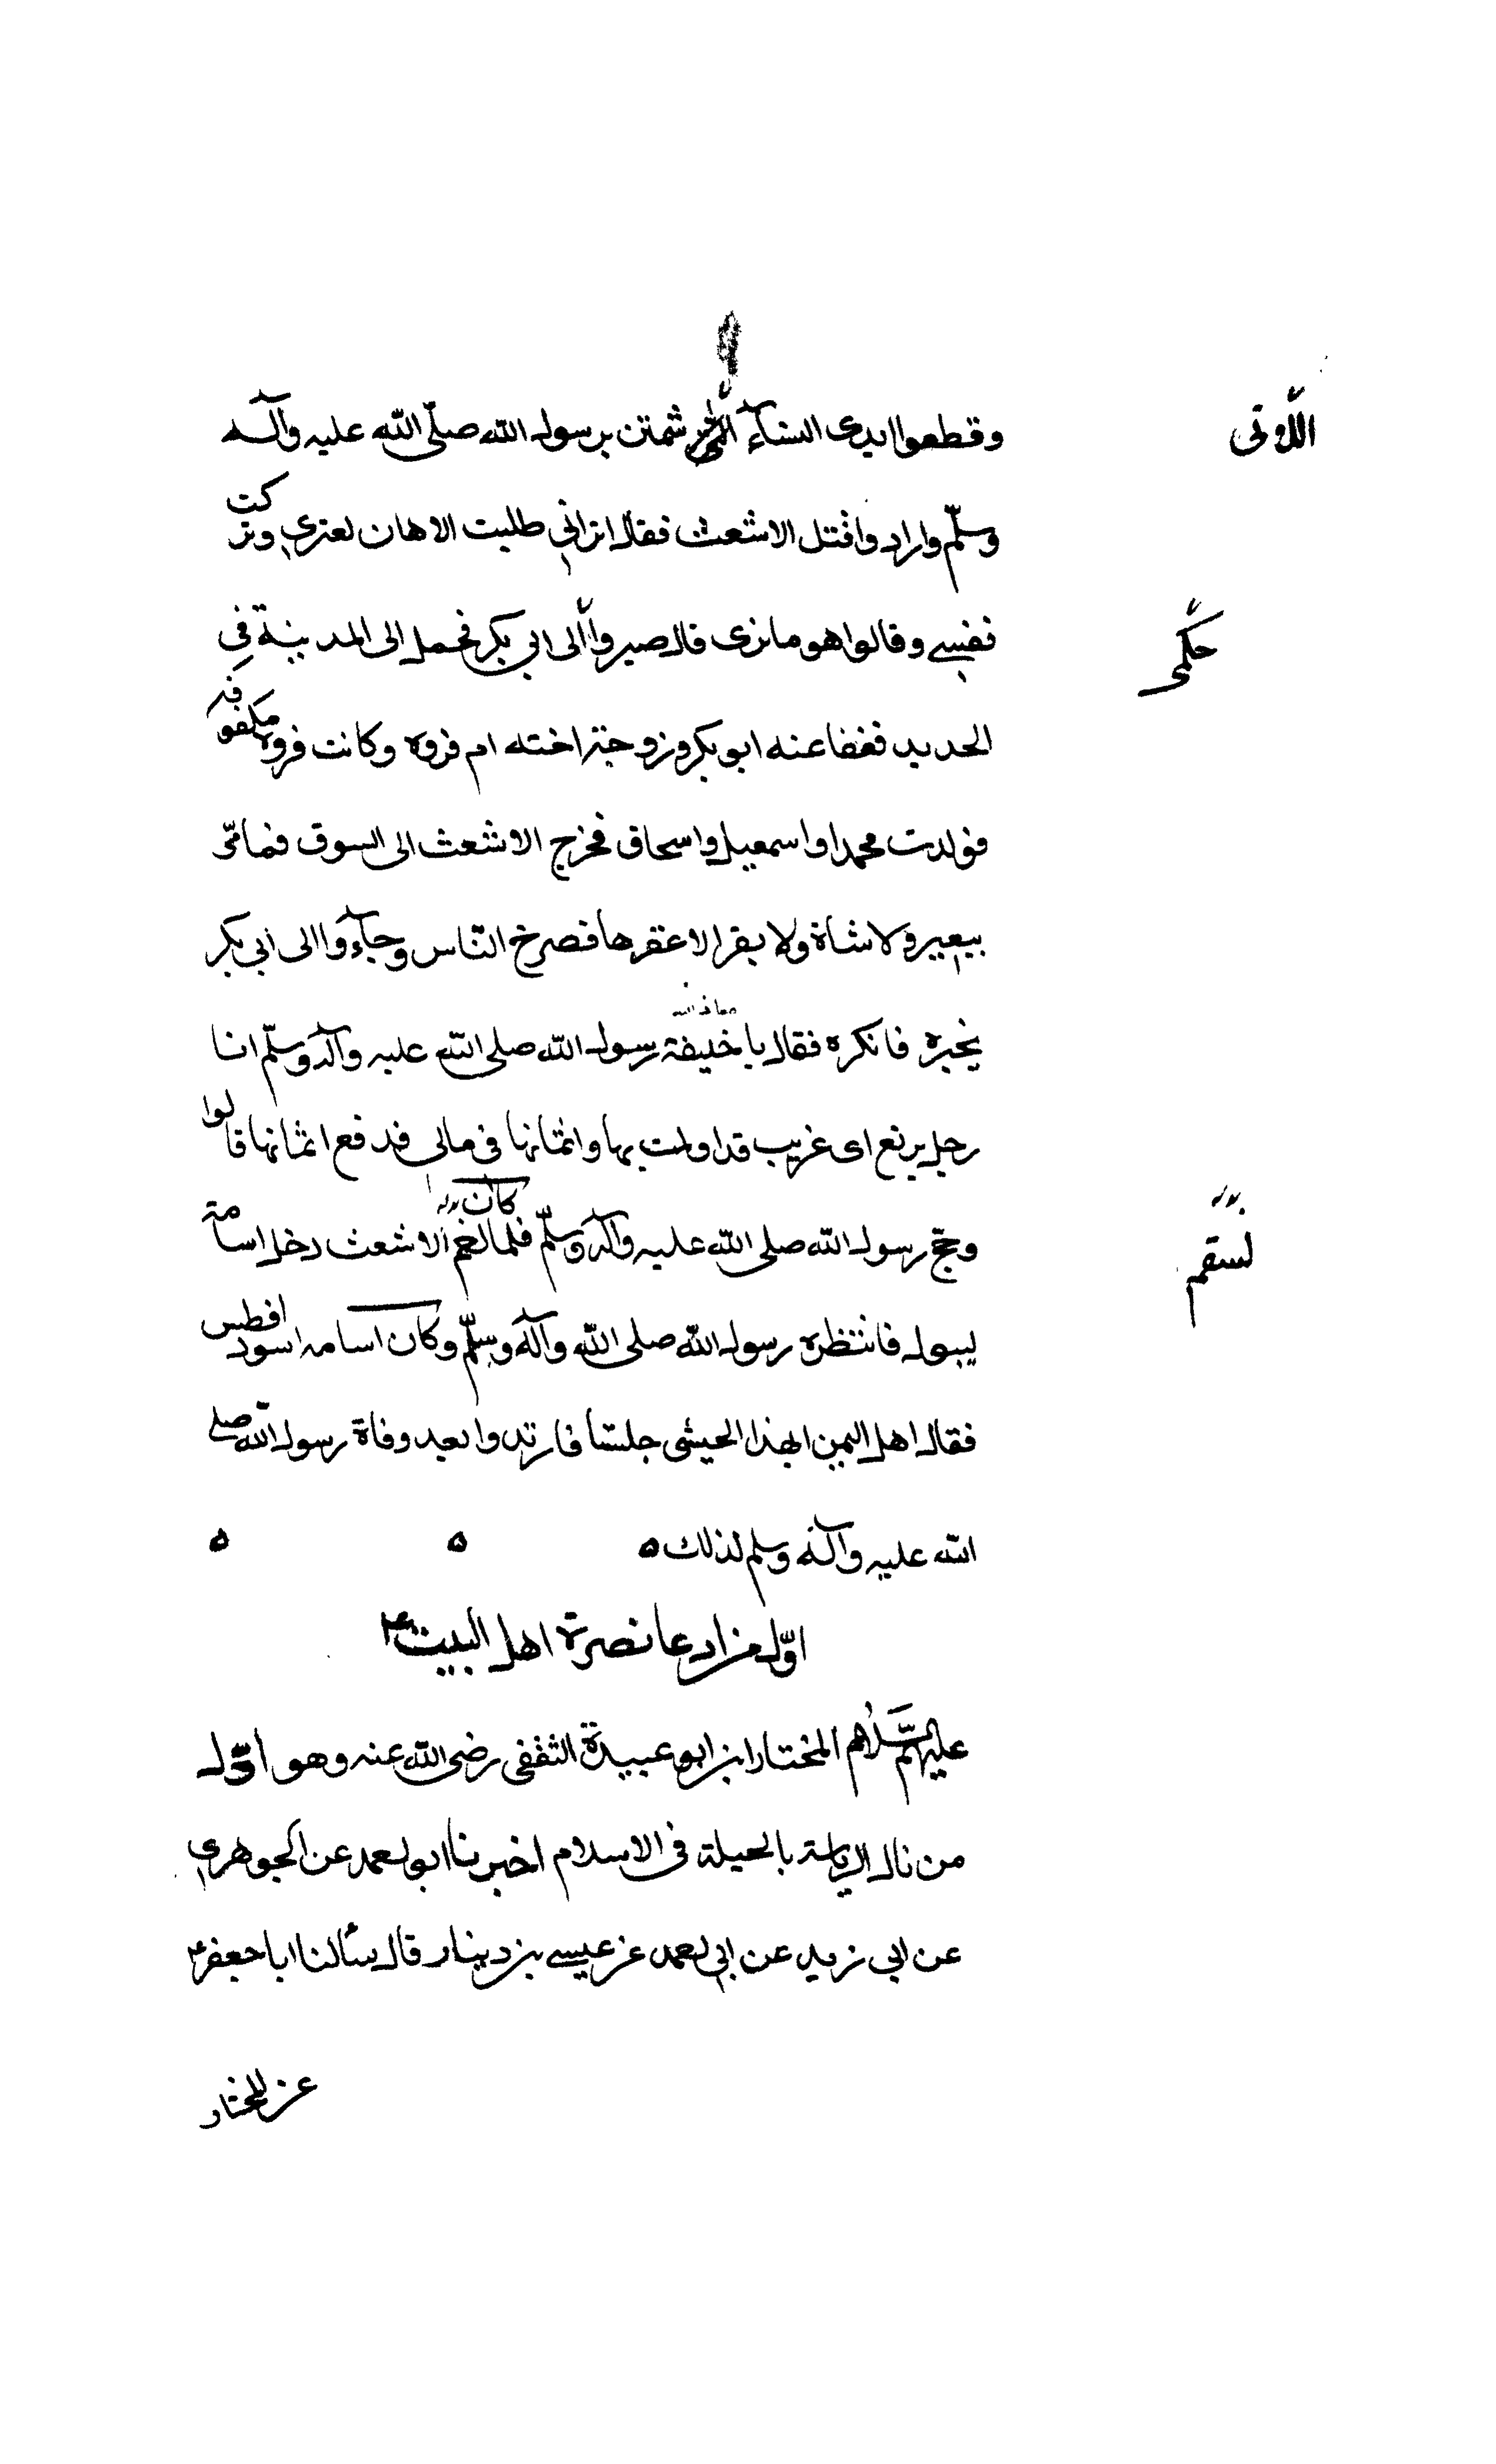 وقطعوا ايدى النسآء شمتن برسول الله صلّى الله عليه وآله
اللاوتى
وسلّم وارادوا قتل الاشعث فقال اترانى طلبت الامان لعترى وتركت
نفسى وقالوا هو ما نرى قال صيروا الى ابى بكر فحمل الى المدينة فى
حكمى
الحديد فعفا عنه ابو بكر وزوجته اخته ام فروه وكانت فروه مكفوفه
فولدت محمدا واسمعيل واسحاق فخرج الاشعث الى السوق فما مرّ
ببعير ولا شاة ولا بقر الا عقرها فصرخ النّاس وجآءوا الى ابى بكر
يخبره فانكره فقال يا خليفة رسول الله صلى الله عليه وآله وسلّم انا
رجل اى غريب قد اولمت بها واثمانها فى مالى فدفع اثمانها قالوا
وحج رسول الله صلى الله عليه وآله وسلّم فلما كان الاشعث دخل اسامة
لستقم
يبول فانتظره رسول الله صلى الله وآله وسلّم وكان اسامه اسود افطس
فقال اهل اليمن الهذا الحبشى جلسنا فارتدوا بعد وفاة رسول الله صلى
الله عليه وآله وسلم لذلك ه ه ه
اوّل من ادعا نصرة اهل البيت ع
عليهم السّلام المختار ابن ابو عبيدة الثقفى رضى الله عنه وهو اوّل
من نال الرياسة بالحيلة فى الاسلام اخبرنا ابو احمد عن الجوهرى
عن ابى زيد عن ابى احمد عن عيسى بن دينار قال سألنا ابا جعفر ع
عن المختار